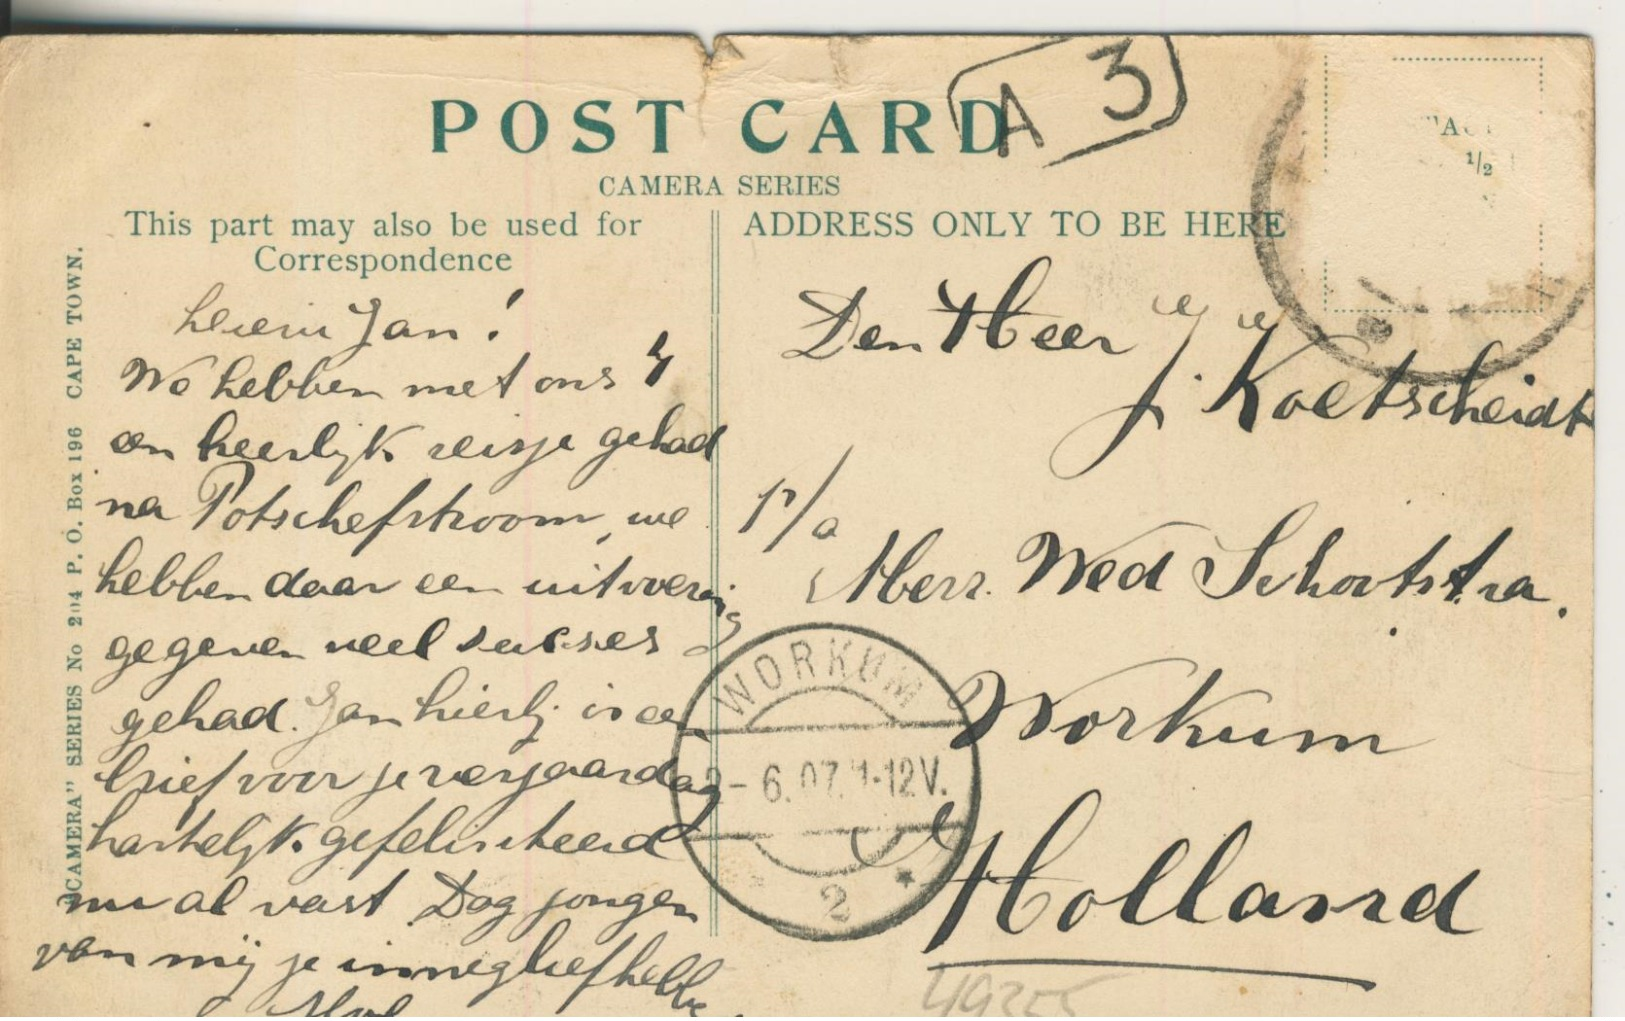 POST CARD
A 3
CAMERA SERIES
This part may also be used for
Correspondence
ADDRESS ONLY TO BE HERE
"CAMERA" SERIES No 204 P. O. Box 196 CAPE TOWN.
1/2
Jan!
We hebben met ons 4
een heerlijk reisje gehad
na Potschefstroom, we
hebben daar een uitvoering
gegeven veel sukses
gehad. Jan hierbij is een
brief voor je verjaardag
hartelijk gefeliciteerd
nu al vast Dag jongen
van mij je innig liefhebbe
Den Heer
J. Koetscheidt
p/a
Wed Schootstra.
Workum
Holland
WORKUM
- 6.07. 1-12V.
2